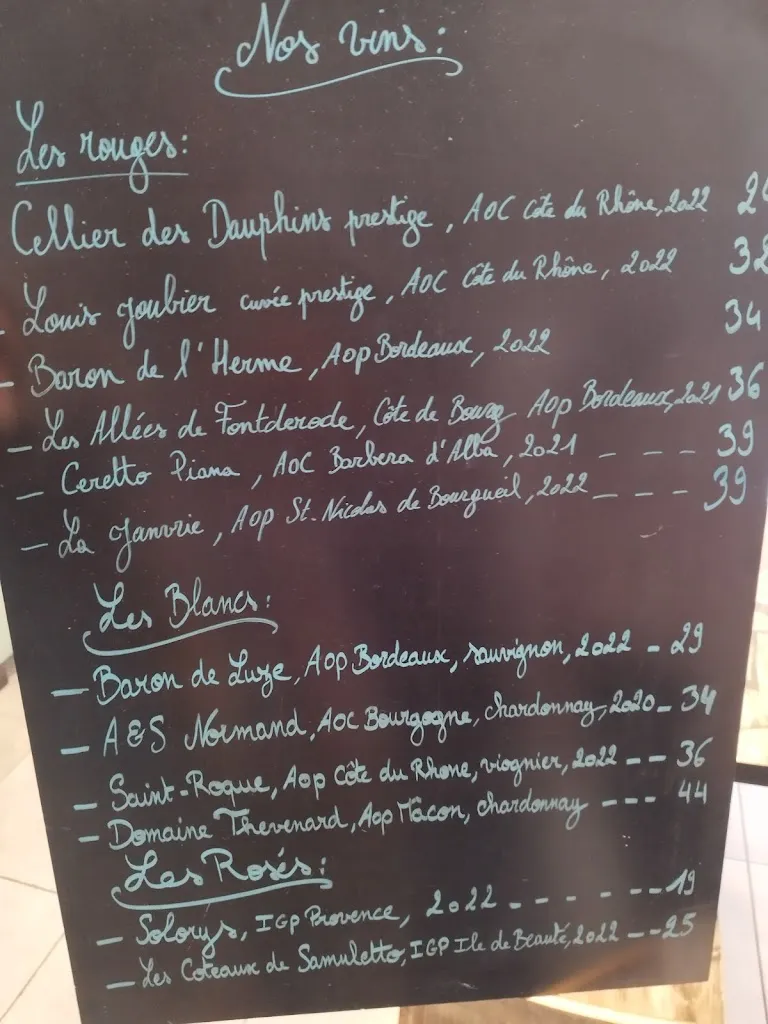 Nos vins:
Les rouges:
Cellier des Dauphins prestige, AOC Côte du Rhône, 2022
- Louis Joubier cuvée prestige, AOC Côte du Rhône, 2022 32
- Baron de l'Herme, Aop Bordeaux, 2022 34
- Les Allées de Fontderode, Côte de Bourg Aop Bordeaux, 2021 36
- Ceretto Piana, AOC Barbera d'Alba, 2021 - - - 39
- La Janvrie, Aop St. Nicolas de Bourgueil, 2022 - - - 39
Les Blancs:
- Baron de Luze, Aop Bordeaux, sauvignon, 2022 - 29
- A&S Normand, AOC Bourgogne, chardonnay, 2020 - 34
- Saint-Roque, Aop Côte du Rhone, viognier, 2022 - - 36
- Domaine Thevenard, Aop Mâcon, chardonnay - - - 44
Les Rosés:
- Solorys, IGP Provence, 2022 - - - - - - 19
- Les Coteaux de Samuletto, IGP Ile de Beauté, 2022 - - 25